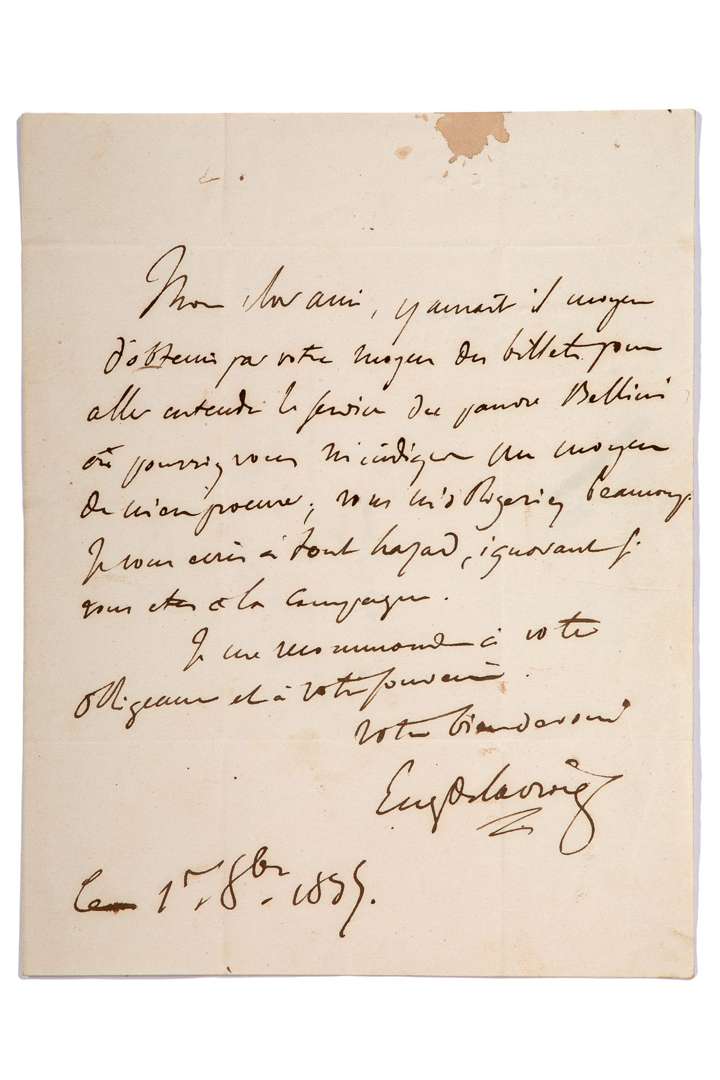 Mon cher ami, y aurait il moyen
d'obtenir par votre moyen des billets pour
aller entendre le service du pauvre Bellini
ou pourriez vous m'indiquer un moyen
de m'en procurer; vous m'obligeriez beaucoup.
Je vous écris à tout hazard, ignorant si
vous etes à la campagne.
Je me recommande à votre
obligeance et à votre souvenir.
votre bien devoué
EugDelacroix
le 1er 8bre. 1835.